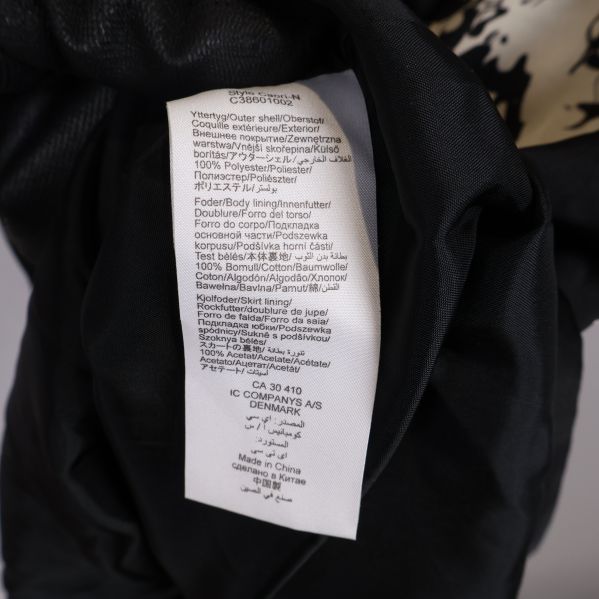 Style Capri-N
C38601002
Yttertyg/Outer shell/Oberstof/
Coquille extérieure/Exterior/
Внешнее покрытие/Zewnętrzna
warstwa/Vnější skořepina/Külső
borítás/アウターシェル/الغلاف الخارجي/
100% Polyester/Poliester/
Полиэстер/Poliészter/
ポリエステル/بولستر/
Foder/Body lining/Innenfutter/
Doublure/Forro del torso/
Forro do corpo/Подкладка
основной части/Podszewka
korpusu/Podšívka horní části/
Test bélés/本体裏地/بطانة بدن الثوب/
100% Bomull/Cotton/Baumwolle/
Coton/Algodón/Algodão/Хлопок/
Bawełna/Bavlna/Pamut/綿/القطن/
Kjolfoder/Skirt lining/
Rockfutter/doublure de jupe/
Forro de falda/Forro da saia/
Подкладка юбки/Podszewka
spódnicy/Sukně s podšívkou/
Szoknya bélés/
スカートの裏地/تنورة بطانة/
100% Acetat/Acetate/Acétate/
Acetato/Ацетат/Acetát/
アセテート/أسيتات/
CA 30 410
IC COMPANYS A/S
DENMARK
المصدر: اي سي
كومبانيس ا / س
المستورد:
اي تي سي
Made in China
сделано в Китае
中国製
صنع في الصين